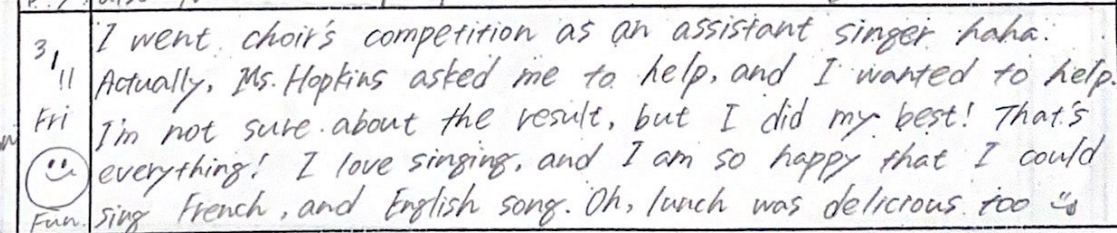 3/11
Fri
Fun.
I went choir's competition as an assistant singer haha.
Actually, Ms. Hopkins asked me to help, and I wanted to help.
I'm not sure about the result, but I did my best! That's
everything! I love singing, and I am so happy that I could
sing French, and English song. Oh, lunch was delicious too